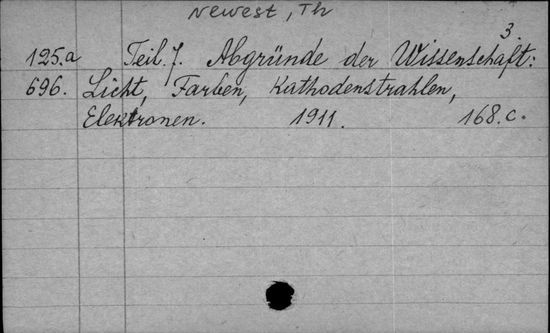 Newest, Th
3.
125.a Teil. 7. Abgründe der Wissenschaft:
696. Licht, Farben, Kathodenstrahlen,
Elektronen. 1911. 168.c.